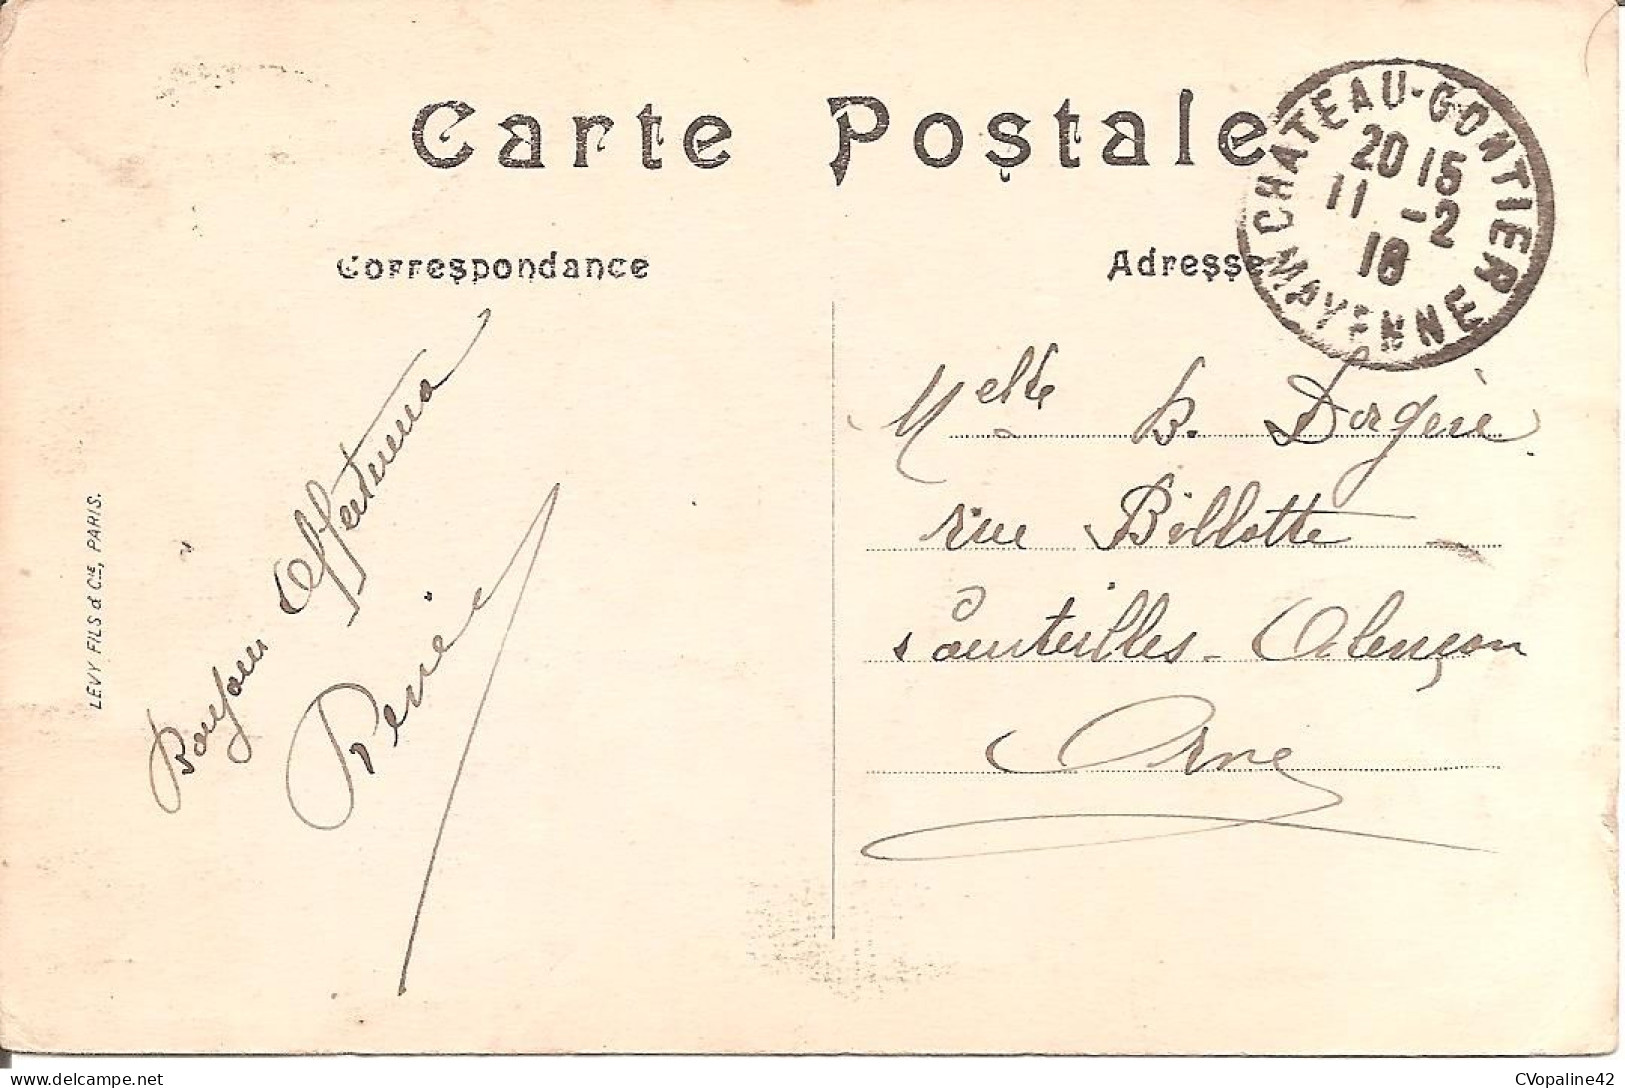 Carte Postale
Correspondance
Adresse
CHATEAU-GONTIER
20 15
11 -2
18
MAYENNE
Melle B. Dorgère
rue Billotte
Courteilles - Alençon
Orne
Bonjour Affectueux
René
LEVY FILS & CIE, PARIS.
CVopaline42